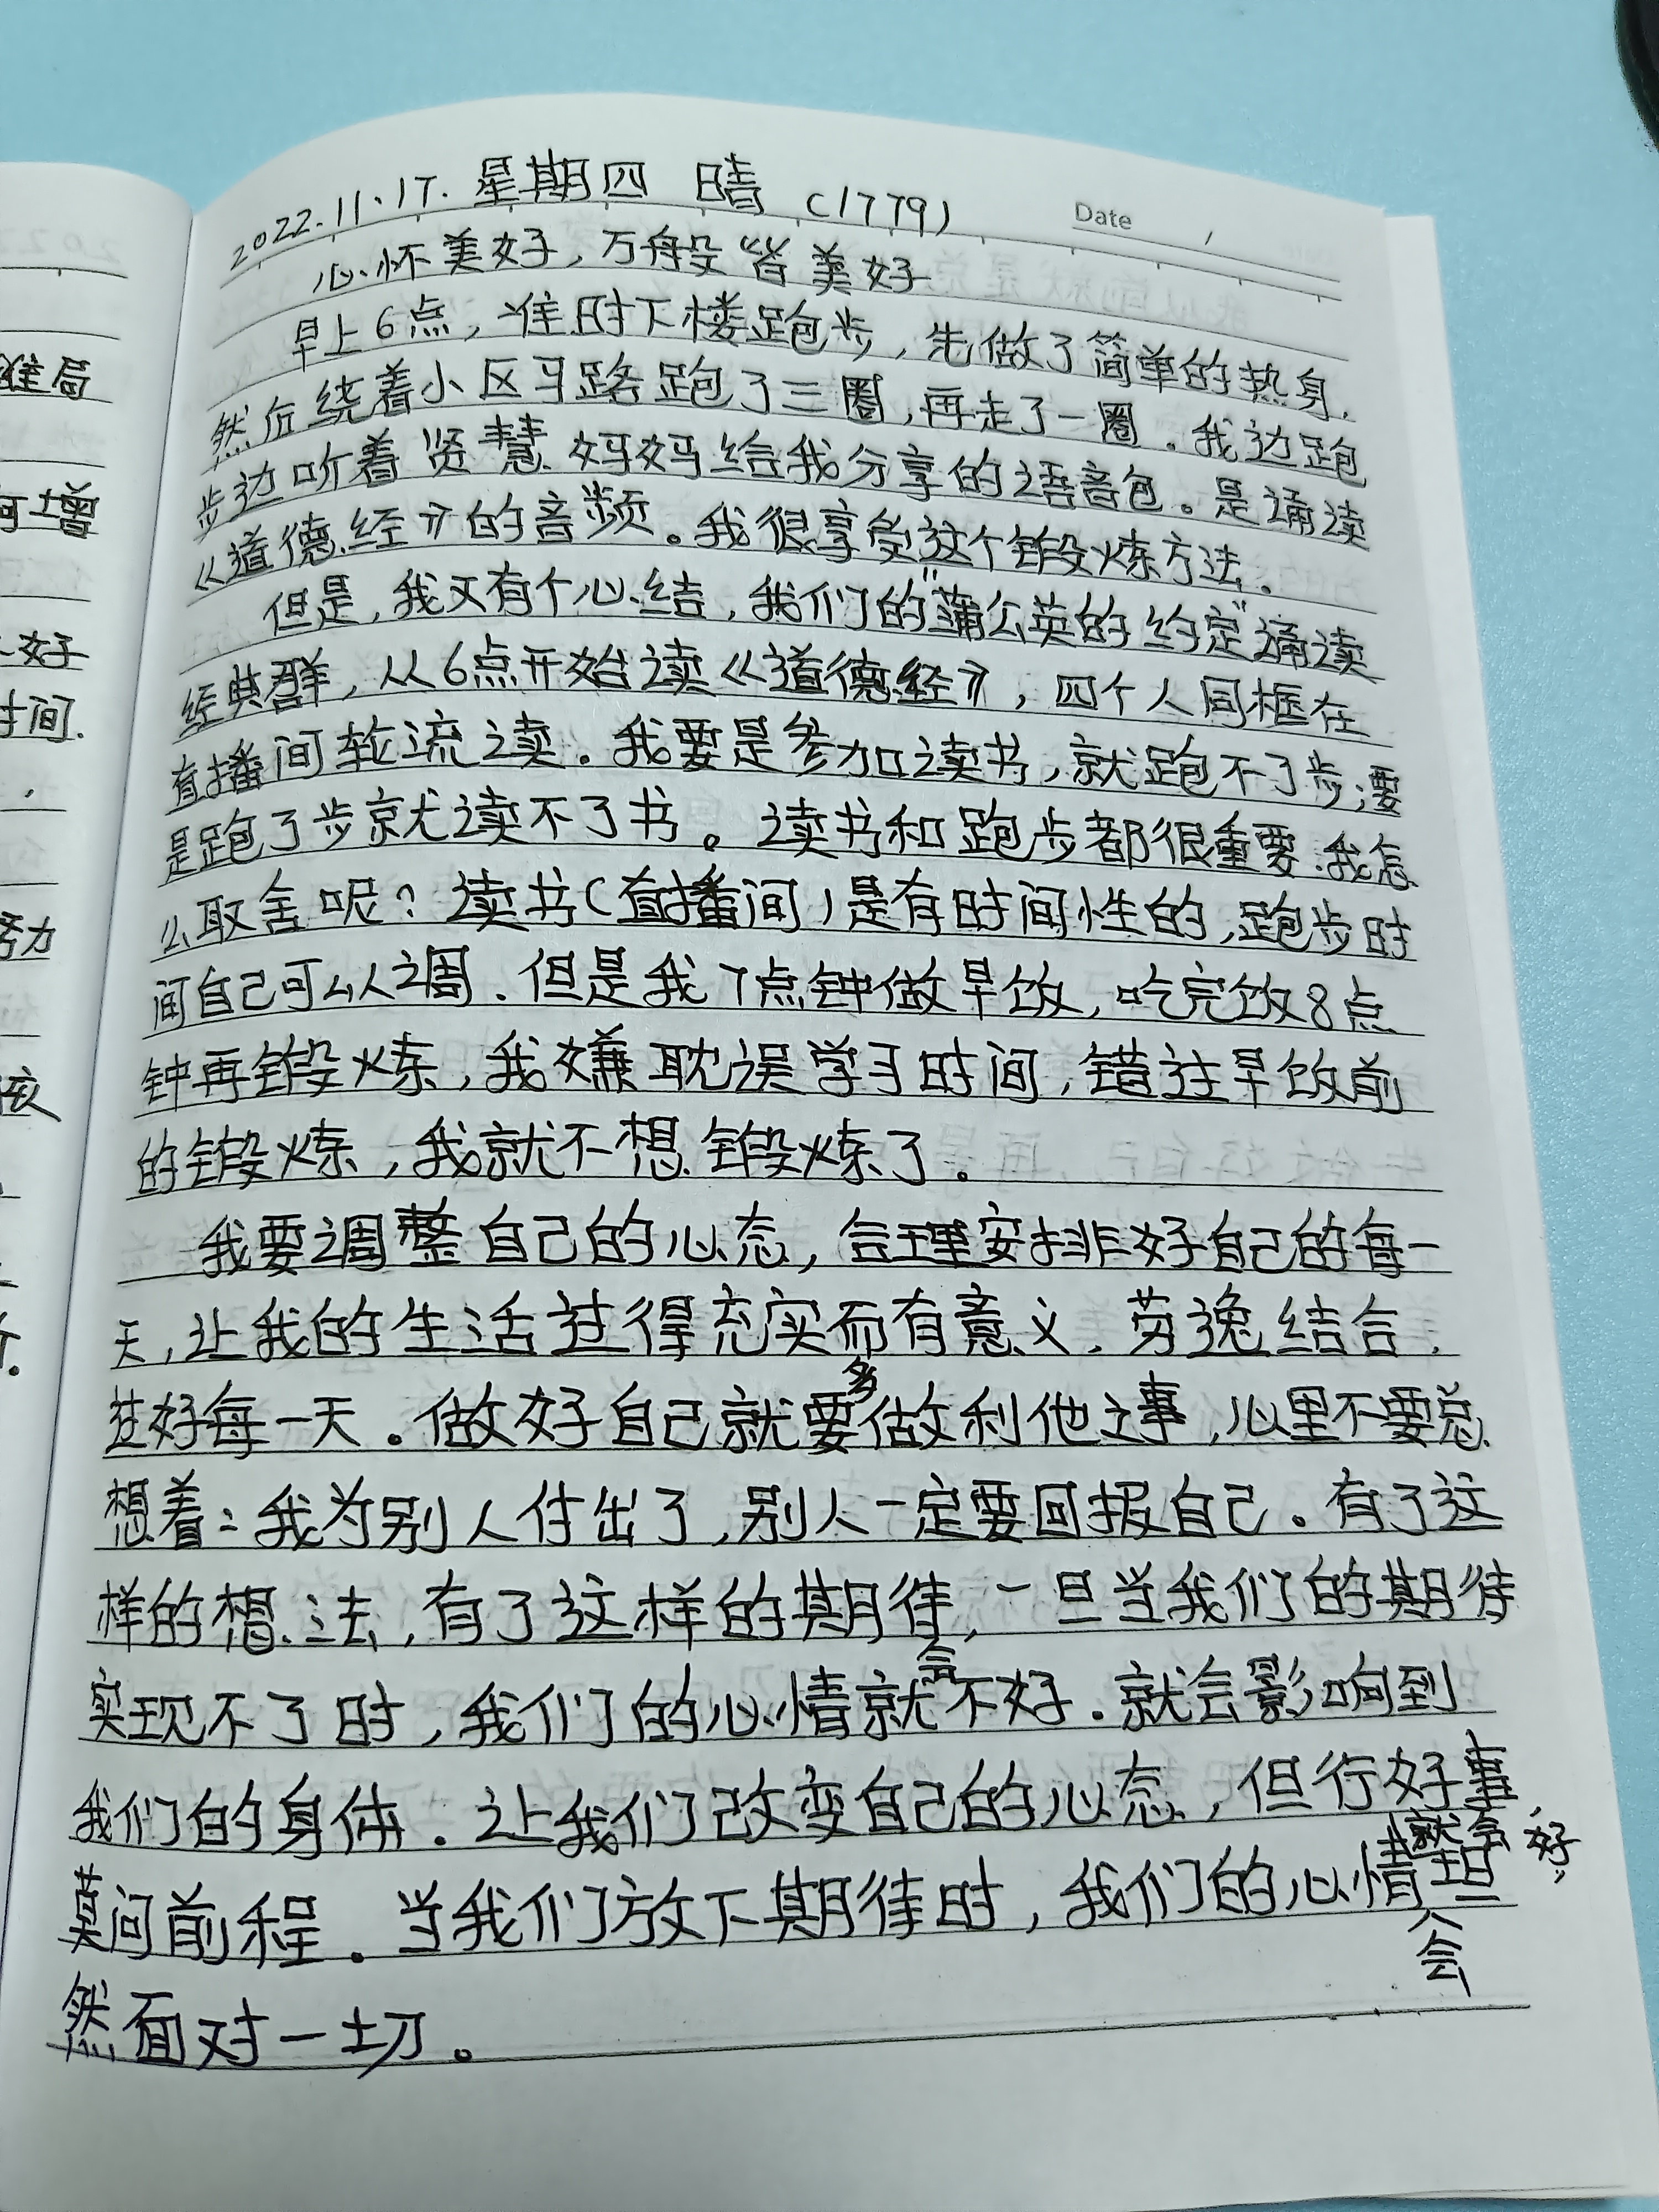 2022.11.17. 星期四 晴 (1779)
Date
心怀美好,万般皆美好
早上6点,准时下楼跑步,先做了简单的热身,
然后绕着小区马路跑了三圈,再走了一圈。我边跑
步边听着贤慧妈妈给我分享的语音包。是诵读
《道德经》的音频。我很享受这个锻炼方法。
但是,我又有个心结,我们的"蒲公英的约定"诵读
经典群,从6点开始读《道德经》,四个人同框在
直播间轮流读。我要是参加读书,就跑不了步;要
是跑了步就读不了书。读书和跑步都很重要.我怎
么取舍呢?读书(直播间)是有时间性的,跑步时
间自己可以调.但是我7点钟做早饭,吃完饭8点
钟再锻炼,我嫌耽误学习时间,错过早饭前
的锻炼,我就不想锻炼了。
我要调整自己的心态,合理安排好自己的每一
天,让我的生活过得充实而有意义.劳逸结合.
过好每一天。做好自己就要多做利他之事,心里不要总
想着:我为别人付出了,别人一定要回报自己。有了这
样的想法,有了这样的期待,一旦当我们的期待
实现不了时,我们的心情就会不好.就会影响到
我们的身体.让我们改变自己的心态,但行好事,
莫问前程。当我们放下期待时,我们的心情就会好,会坦
然面对一切。
难局
何增
好
时间.
努力